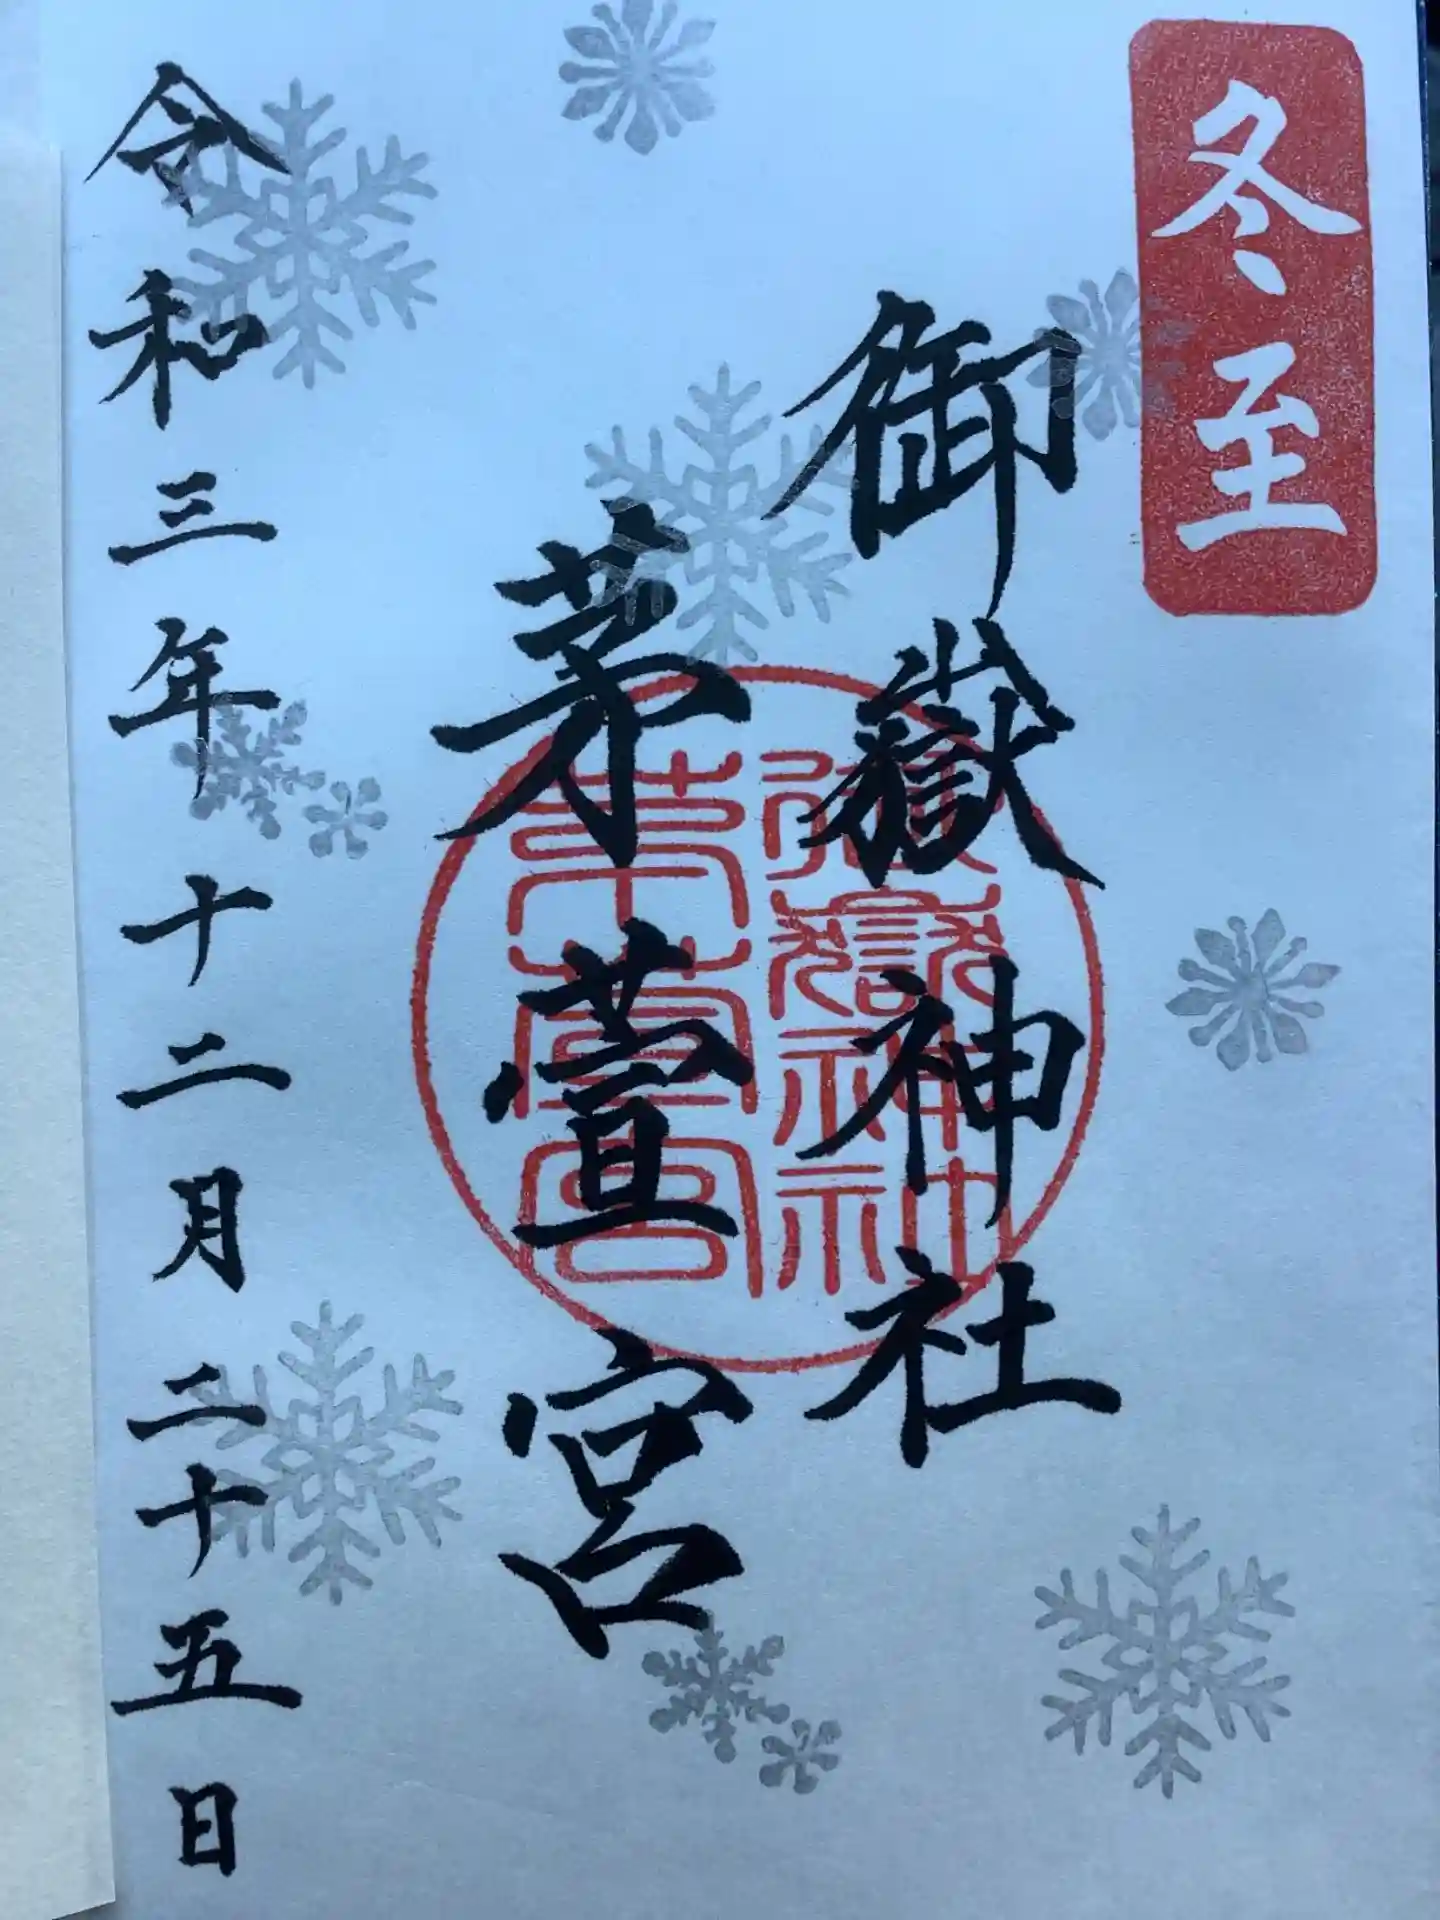 冬至
御嶽神社
茅萱宮
御嶽神社
茅萱宮
令和三年十二月二十五日